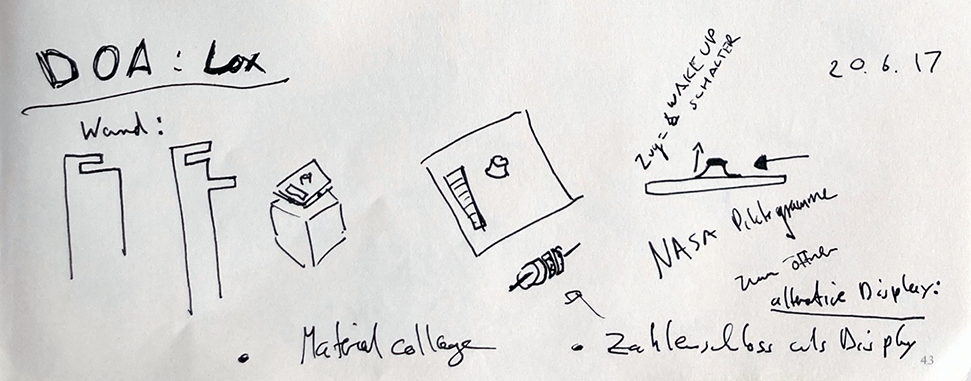 DOA: Lox
20.6.17
Wand:
Zug = WAKE UP
SCHALTER
NASA Piktogramme
zum öffnen
alternative Display:
• Material collage
• Zahlenschloss als Display
43